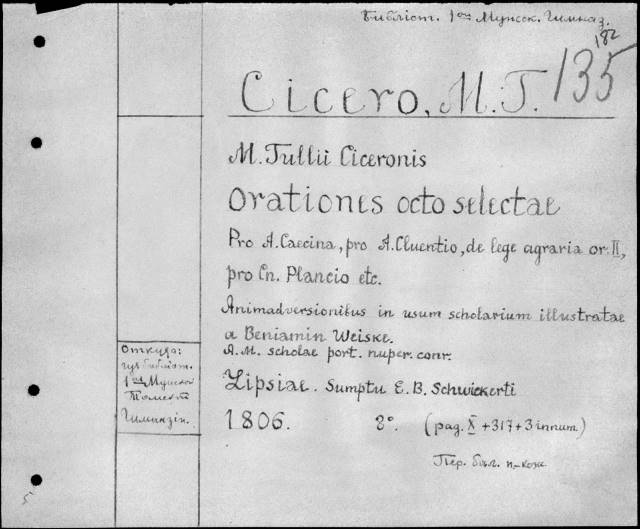 Библіот. 1ой Мужск. Гимназ.
182
135
Cicero, M. T.
M. Tullii Ciceronis
Orationes octo selectae
Pro A. Caecina, pro A. Cluentio, de lege agraria or. II,
pro Cn. Plancio etc.
Animadversionibus in usum scholarium illustratae
a Beniamin Weiske.
A. M. scholae port. nuper. conr.
Lipsiae. Sumptu E. B. Schwickerti
1806. 8°. (pag. X + 317 + 3 innum.)
Пер. бѣл. п.-кож.
Откуда:
изъ библіот.
1ой Мужской
Гимназіи.
5